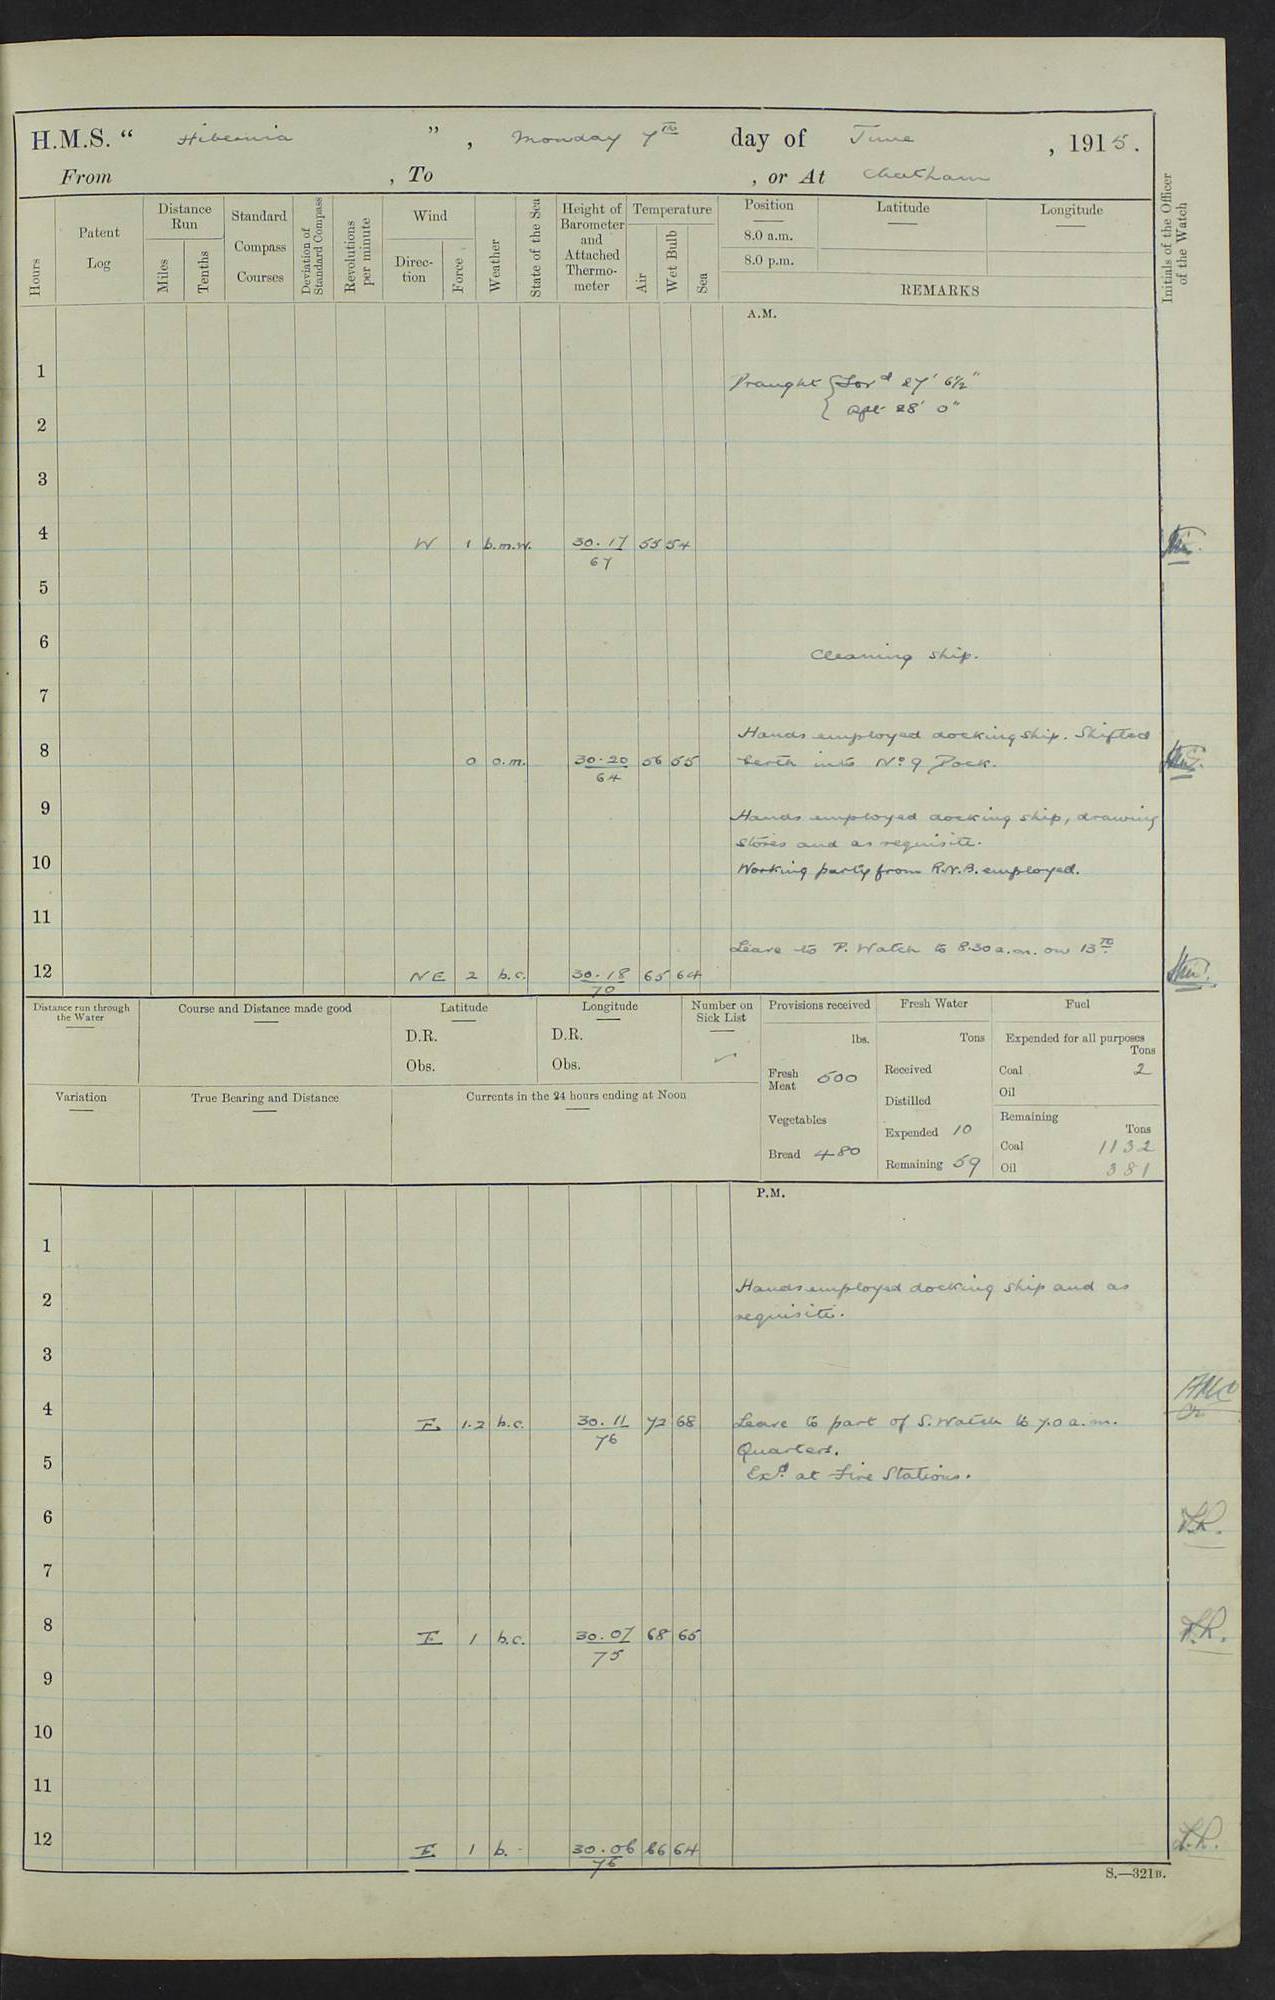 H.M.S. “ Hibernia ”, Monday 7th day of June, 1915.
From , To , or At Chatham
Hours
Patent Log
Distance Run
Miles
Tenths
Standard Compass Courses
Deviation of Standard Compass
Revolutions per minute
Wind
Direction
Force
Weather
State of the Sea
Height of Barometer and Attached Thermometer
Temperature
Air
Wet Bulb
Sea
Position
8.0 a.m.
8.0 p.m.
Latitude
Longitude
REMARKS
Initials of the Officer of the Watch
A.M.
1
Draught { For^d 27' 6½"
{ Aft 28' 0"
2
3
4 W 1 b.m.w. 30.17 55 54
67
5
6
Cleaning ship.
7
Hands employed docking ship. Shifted
8 0 o.m. 30.20 56 55 berth into No 9 Dock.
64
9 Hands employed docking ship, drawing
stores and as requisite.
10 Working party from R.N.B. employed.
11
Leave to P. Watch to 8.30 a.m. on 13th.
12 NE 2 b.c. 30.18 65 64
70
Distance run through the Water
Course and Distance made good
Latitude
D.R.
Obs.
Longitude
D.R.
Obs.
Number on Sick List
✓
Provisions received
lbs.
Fresh Meat 500
Vegetables
Bread 480
Fresh Water
Tons
Received
Distilled
Expended 10
Remaining 59
Fuel
Expended for all purposes
Tons
Coal 2
Oil
Remaining
Tons
Coal 1132
Oil 381
Variation
True Bearing and Distance
Currents in the 24 hours ending at Noon
P.M.
1
2 Hands employed docking ship and as
requisite.
3
4 E 1.2 b.c. 30.11 72 68 Leave to part of S. Watch to 7.0 a.m.
76 Quarters.
5 Ex^d. at Fire Stations.
6
7
8 E 1 b.c. 30.07 68 65
75
9
10
11
12 E 1 b. 30.06 66 64
76
S.—321B.